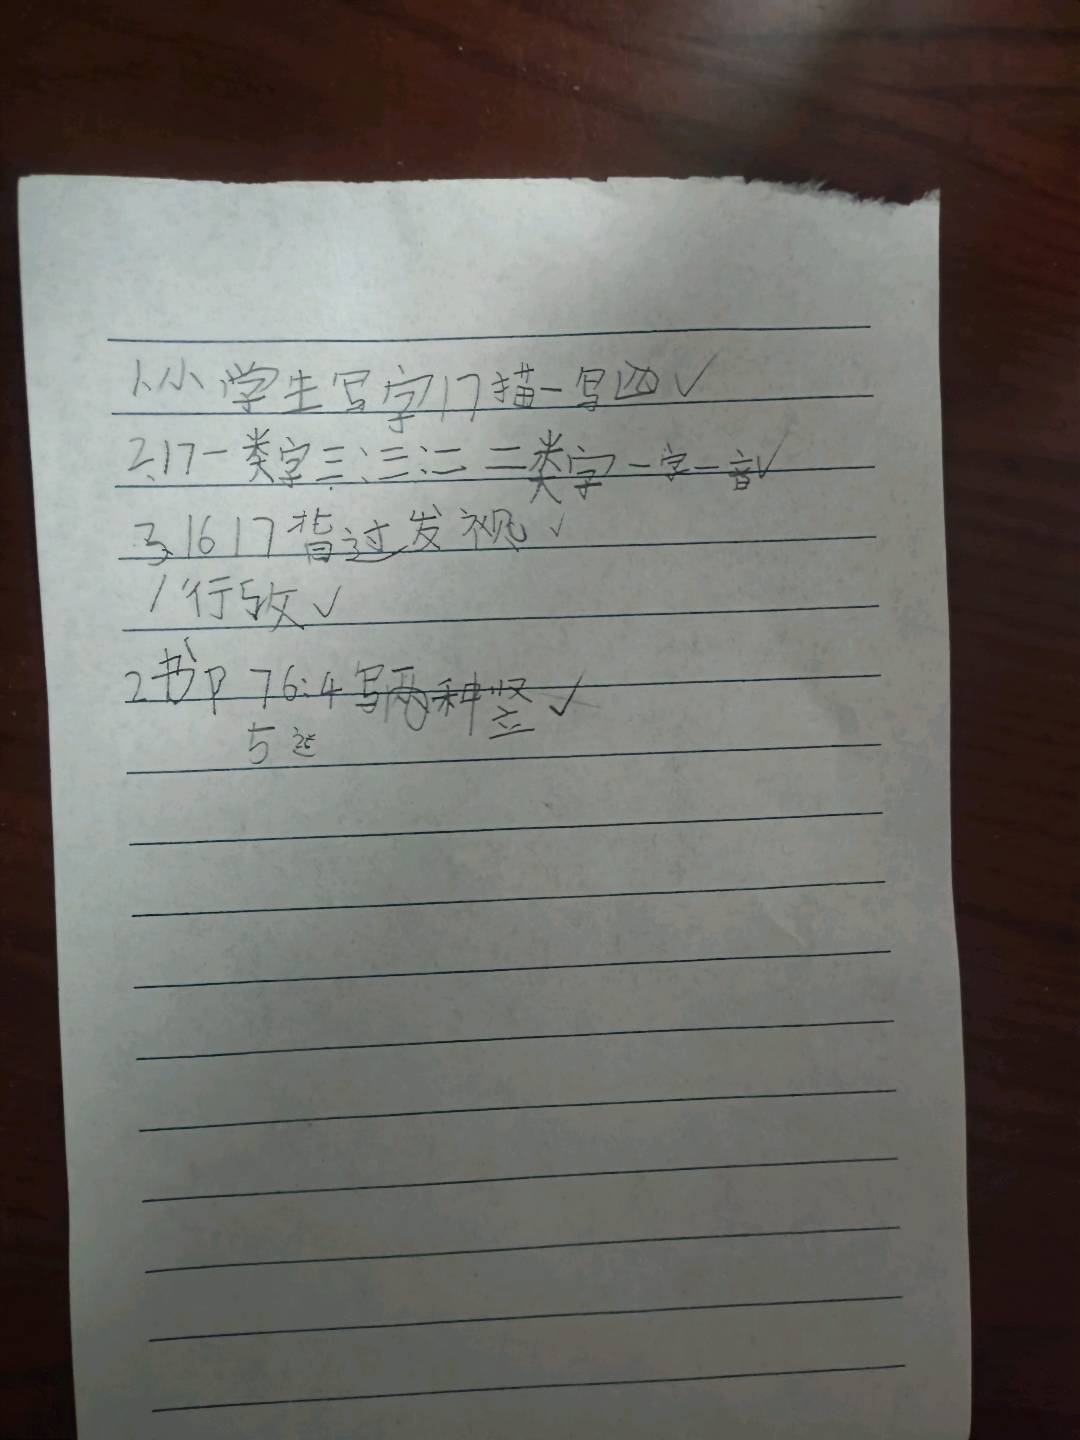 1、小学生写字17描一写四✓
2、17一类字三:三:二 二类字一字一音✓
3、16 17背过发视✓
1行
2书P 76:4写两种竖✓
5